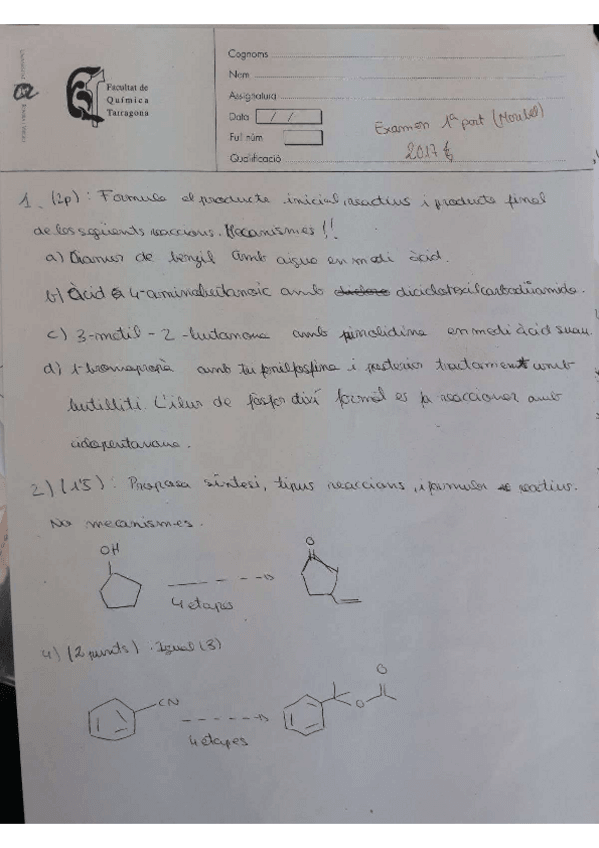 Facultat de
Química
Tarragona
Cognoms
Nom
Assignatura
Data / /
Full núm.
Qualificació
Examen 1ª part
2017
1. (2p): Formula el producte inicial, reactius i producte final
de les següents reaccions. Mecanismes!!
a) Cianur de benzil amb aigua en medi àcid.
b) Àcid 4-aminobutanoic amb diciclohexilcarbodiimida.
c) 3-metil-2-butanona amb pirrolidina en medi àcid suau.
d) 1-bromopropà amb trifenilfosfina i posterior tractament amb
butilliti. L'ilur de fòsfor així format es fa reaccionar amb
ciclopentanona.
2) (1'5): Proposa síntesi, tipus reaccions, i formular reactius.
No mecanismes.
OH
O
4 etapes
4) (2 punts). Igual (3)
CN
O
O
4 etapes